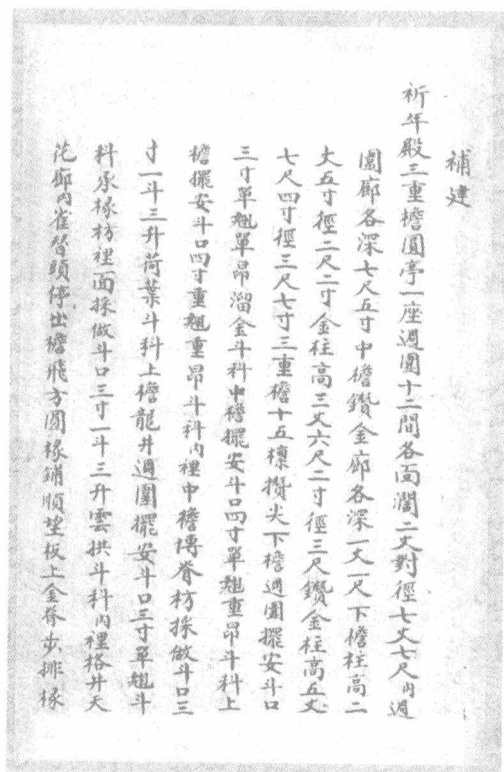 補建
祈年殿三重檐圓亭一座週圍十二間各面濶二丈對徑七丈七尺內週
圍廊各深七尺五寸中檐鑽金廊各深一丈一尺下檐柱高二
丈五寸徑二尺二寸金柱高三丈六尺二寸徑三尺鑽金柱高五丈
七尺四寸徑三尺七寸三重檐十五檁攢尖下檐週圍擺安斗口
三寸單翹單昂溜金斗科中檐擺安斗口四寸單翹重昂斗科上
檐擺安斗口四寸重翹重昂斗科內裡中檐博脊枋採做斗口三
寸一斗三升荷葉斗科上檐龍井週圍擺安斗口三寸單翹斗
科承椽枋裡面採做斗口三寸一斗三升雲拱斗科內裡格井天
花廊內雀替頭停出檐飛方圓椽鋪順望板上金脊步排椽